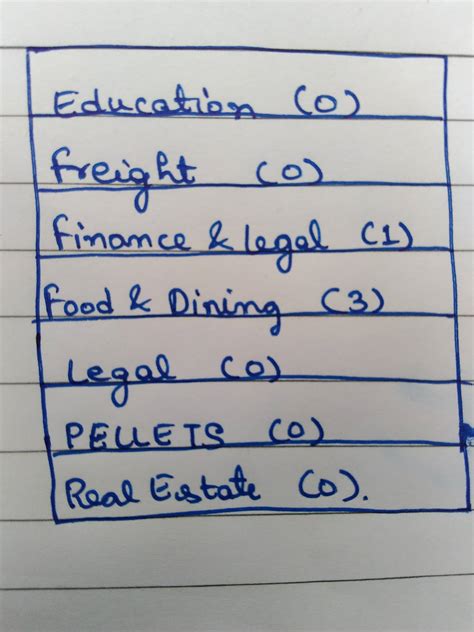 Education (0)
Freight (0)
Finance & Legal (1)
Food & Dining (3)
Legal (0)
PELLETS (0)
Real Estate (0).